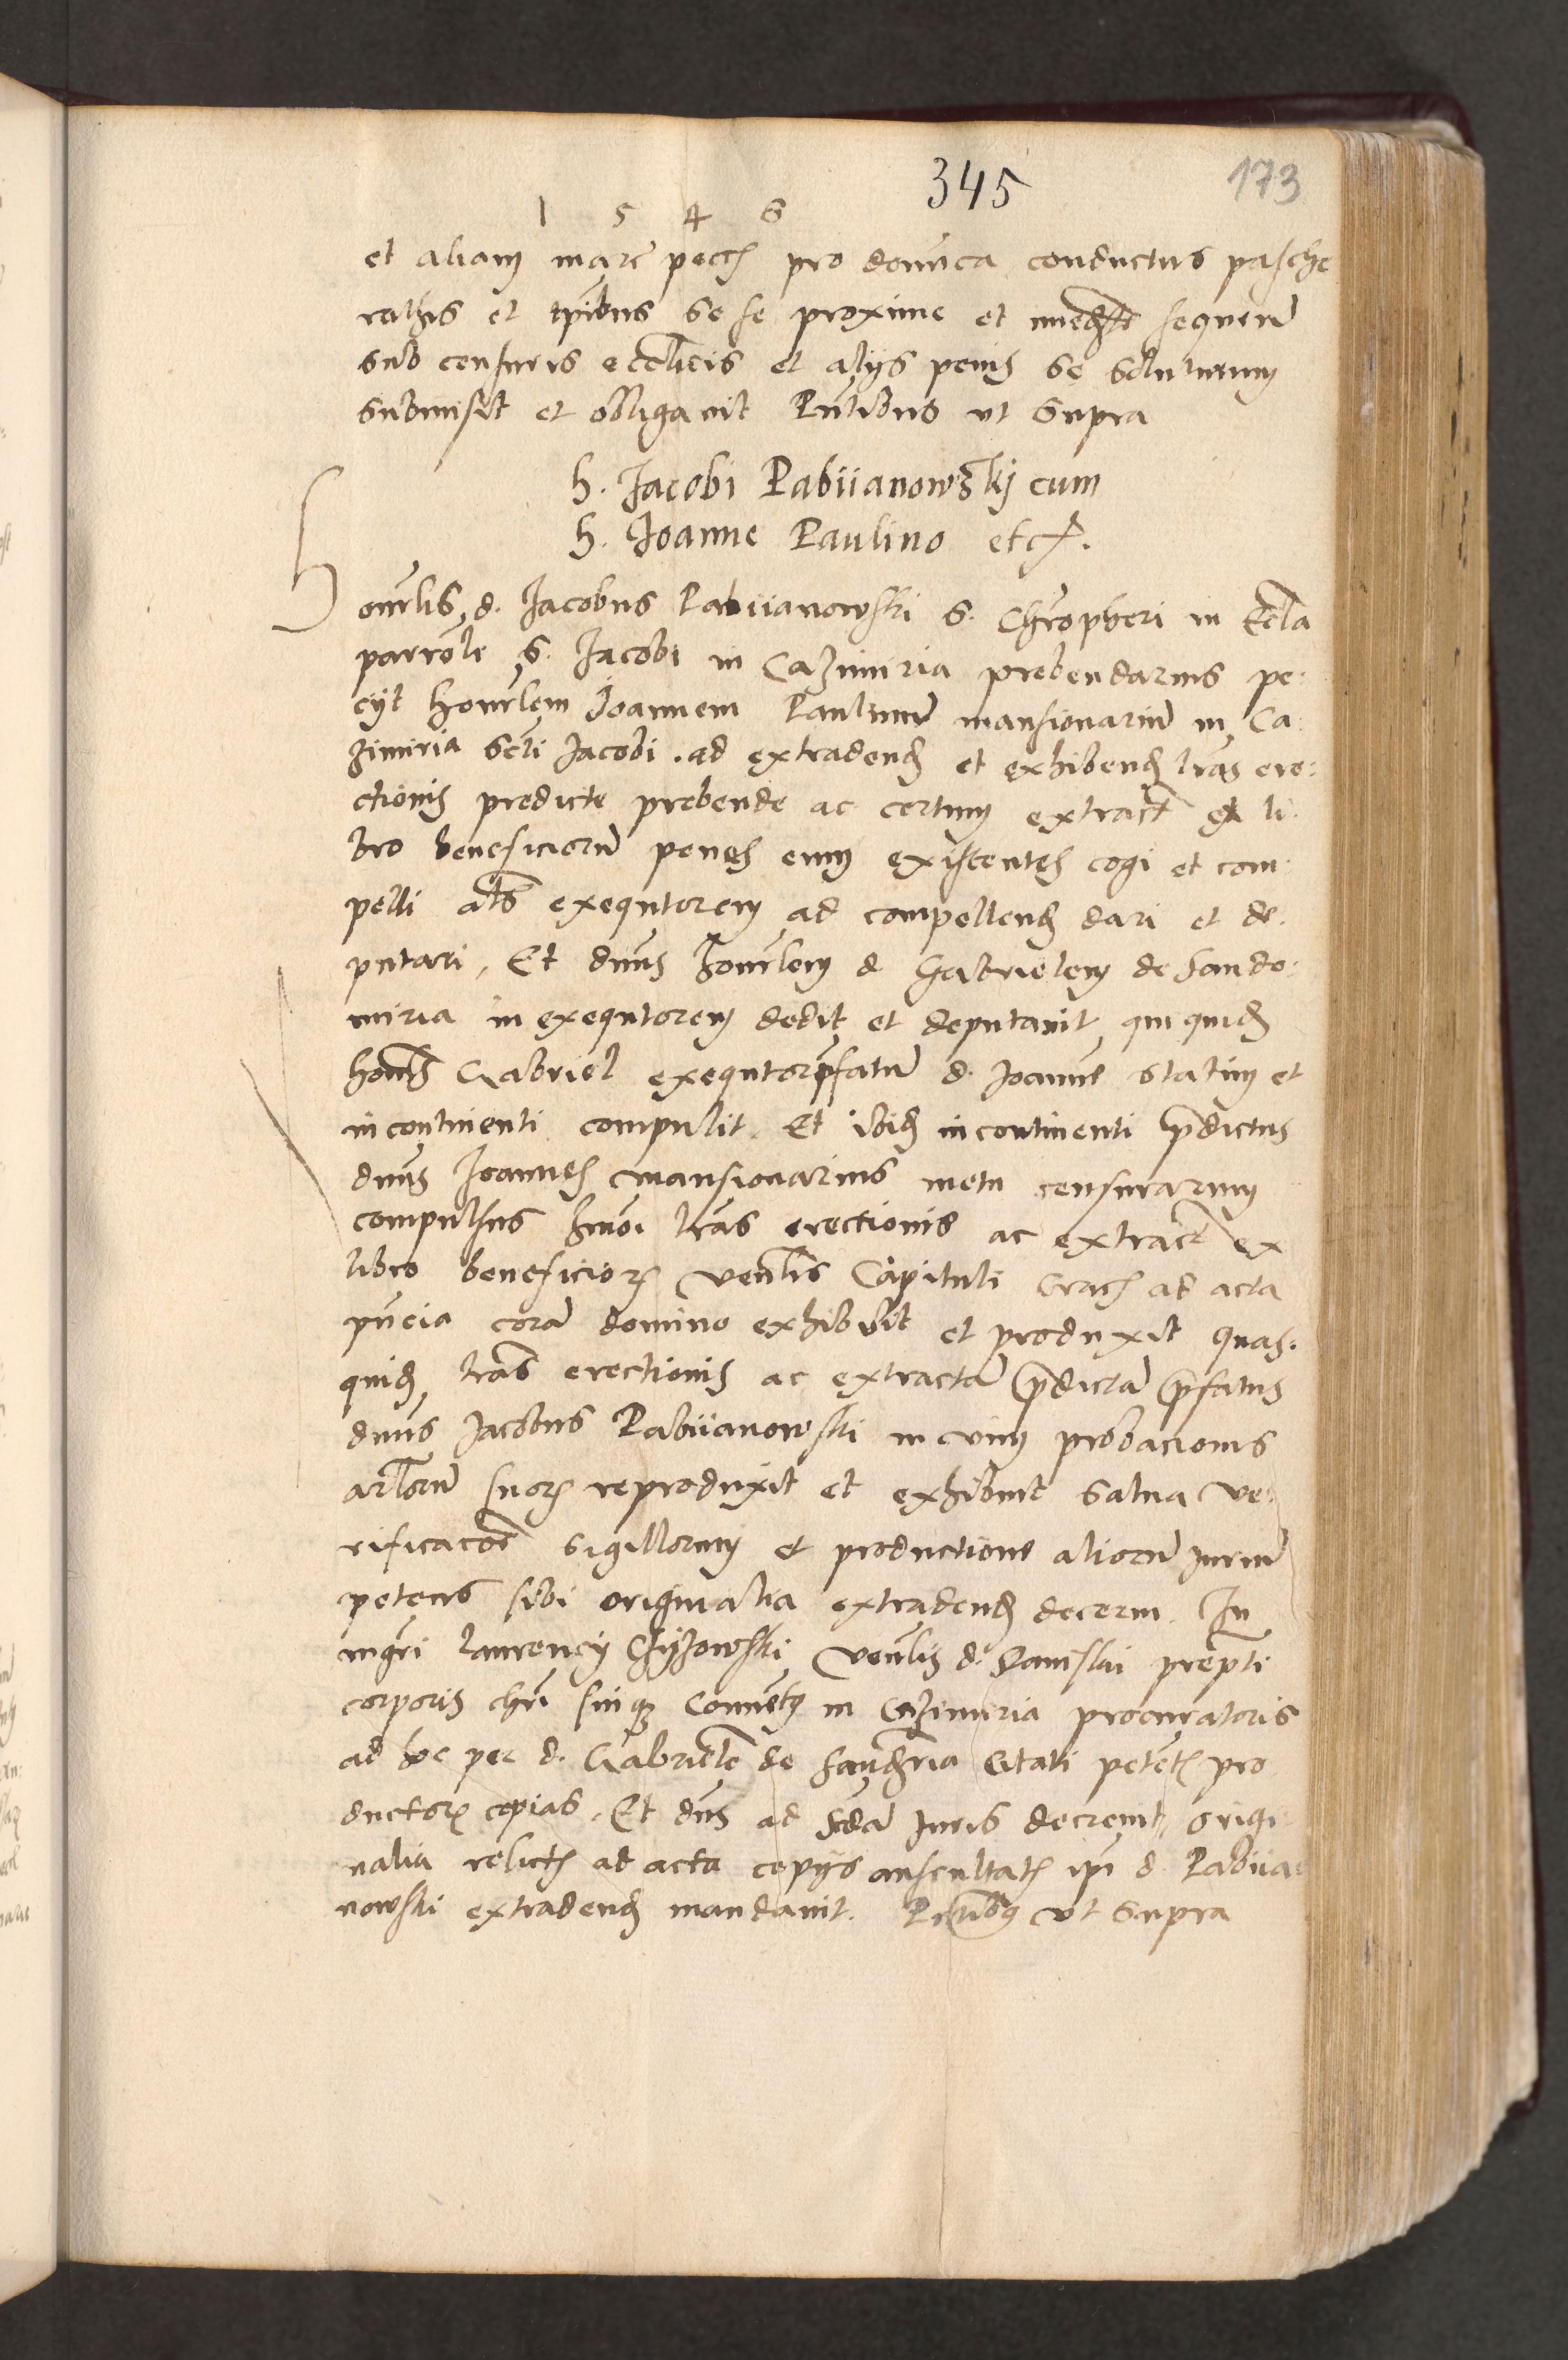 345
173
1 5 4 6
et aliam marc pecc pro domica conductus pasche
rathis et tpibus se se proxime et sequen
sub censuris ecclicis et alijs penis se soluturum
submisit et obligavit Pntibus ut supra
h. Jacobi Pabiianowskj cum
h. Joanne Paulino etc.
Honrlis d. Jacobus Pabiianowski s. Chropheri in Eccla
parrole s. Jacobi in Cazimiria prebendarius pe:
cijt honrlem Joannem Paulinum mansionarium in Ca
zimiria scti Jacobi. ad extradend et exhibend lras ere:
ctionis predicte prebende ac certum extract ex li:
bro beneficiorum penes eum existentes cogi et com:
pelli atqs exequtorem ad compellend dari et de:
putari, Et dnus honrlem d Gabrielem de Sando:
miria in exequtorem dedit et deputavit, qui quid
honrlis Gabriel exequtor pfatum d. Joannem statim et
incontinenti compulit. Et ibid incontinenti pdictus
dnus Joannes mansionarius metu censurarum
compulsus hmoi lras erectionis ac extract ex
libro beneficior venlis Capituli Crac ad acta
pncia coram domino exhibuit et produxit quas.
quid lras erectionis ac extractum pdictum pfatus
dnus Jacobus Pabiianowski in vim probacionis
artlorum suor reproduxit et exhibuit salva ve:
rificacoe sigillorum et productione aliorum jurium
petens sibi originalia extradend decerni. In
mgri laurencij Chijzowski venlis d. Stanislai prepti
corporis chri suiq Conventus in Cazimiria procuratoris
ad hoc per d. Gabrielem de Sandomria citati petent pro
ductor copias. Et dns ad scdam Juris decrevit, origi
nalia relictis ad acta copijs auscultatis ipi d Pabiia
nowski extradend mandavit. Pntibus ut supra